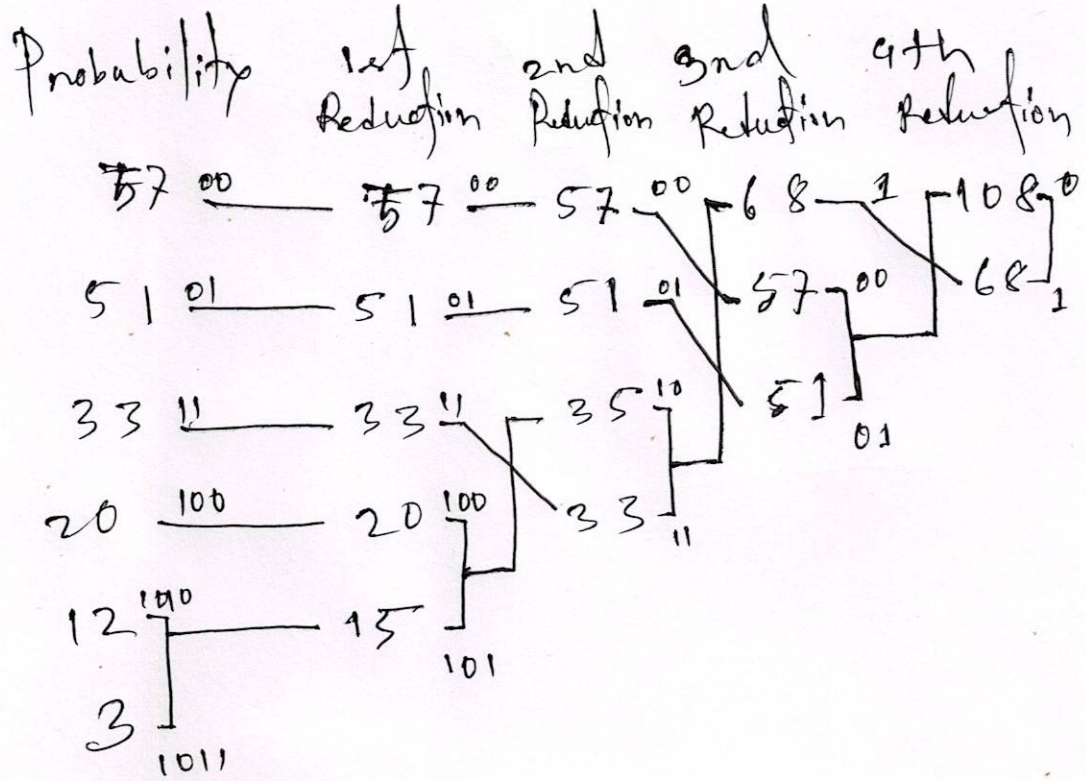 Probability 1st Reduction 2nd Reduction 3rd Reduction 4th Reduction
57 00 57 00 57 00 68 1 108 0
51 01 51 01 51 01 57 00 68 1
33 11 33 11 35 10 51 01
20 100 20 100 33 11
12 1010 15 101
3 1011